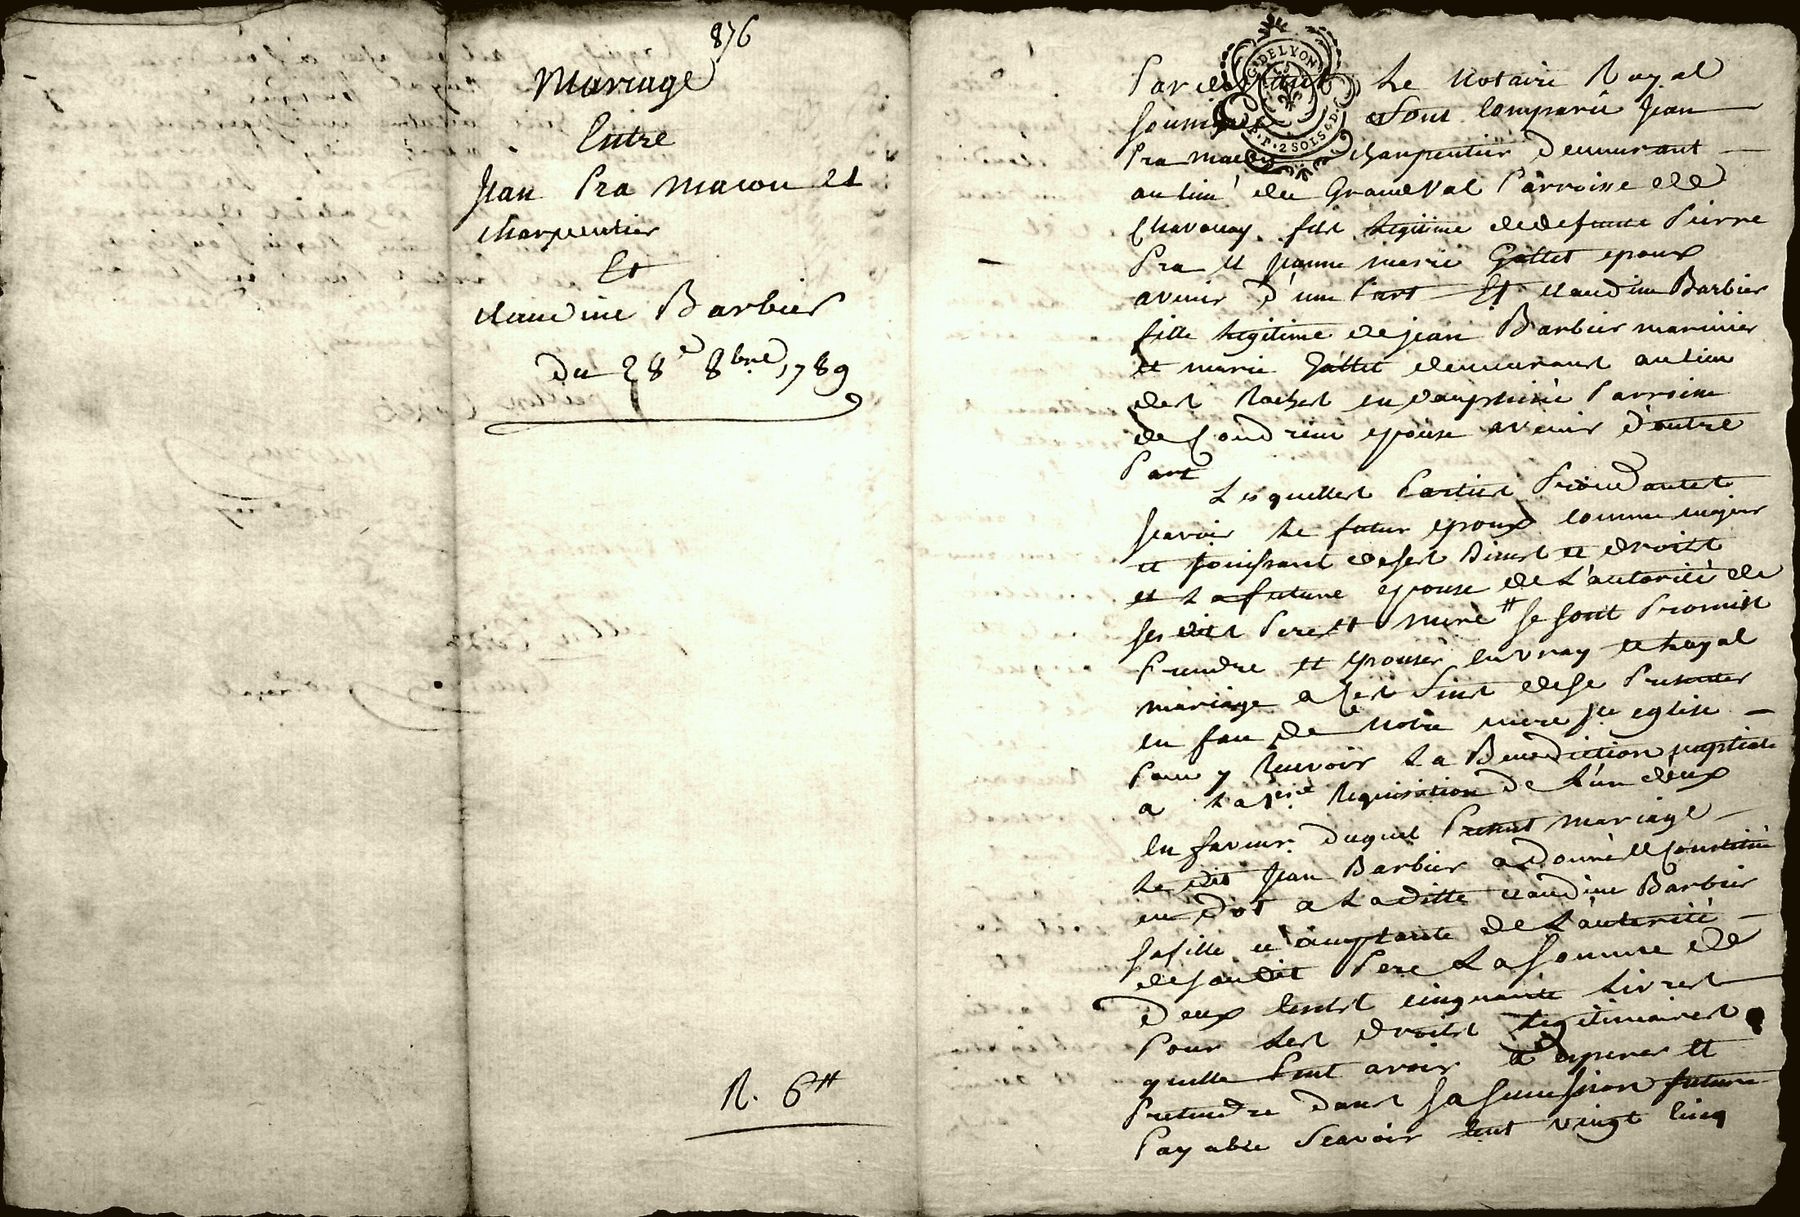 876
Mariage
Entre
Jean Pra macon et
charpentier
Et
claudine Barbier
du 28e 8bre 1789
R. 6#
G. DE LYON
2 SOLS 6 D.
Pardevant Le Notaire Royal
soussigné sont comparu Jean
Pra macon charpentier demeurant
au lieu de Grandval Parroisse de
Chavanay fils legitime de defunt Pierre
Pra et Jeanne marie Gallet epoux
avenir d'une Part Et claudine Barbier
fille legitime de jean Barbier marinier
et marie Gallet demeurant au lieu
des Roches en dauphiné Parroisse
de Condrieu epouse avenir d'autre
Part
Lesquelles Parties Procedantes
scavoir Le futur epoux comme majeur
et jouissant de ses Biens et droits
et La future epouse de L'autorité de
ses dits Pere et mere # se sont Promis
Prendre et epouser en vray et Loyal
mariage a ces fins de se Presenter
en face de Notre mere ste eglise
Pour y Recevoir La Benediction nuptiale
a La 1ere Requisition de L'un d'eux
En faveur duquel Present mariage
Le dit Jean Barbier a donné et Constitué
en dot a La ditte claudine Barbier
sa fille acceptante de L'autorité
de sondit Pere La somme de
deux Cents cinquante Livres
Pour Les droits Legitimaires
quelle Peut avoir et esperer et
Pretendre dans sa succession future
Payable Scavoir Cent vingt Cinq